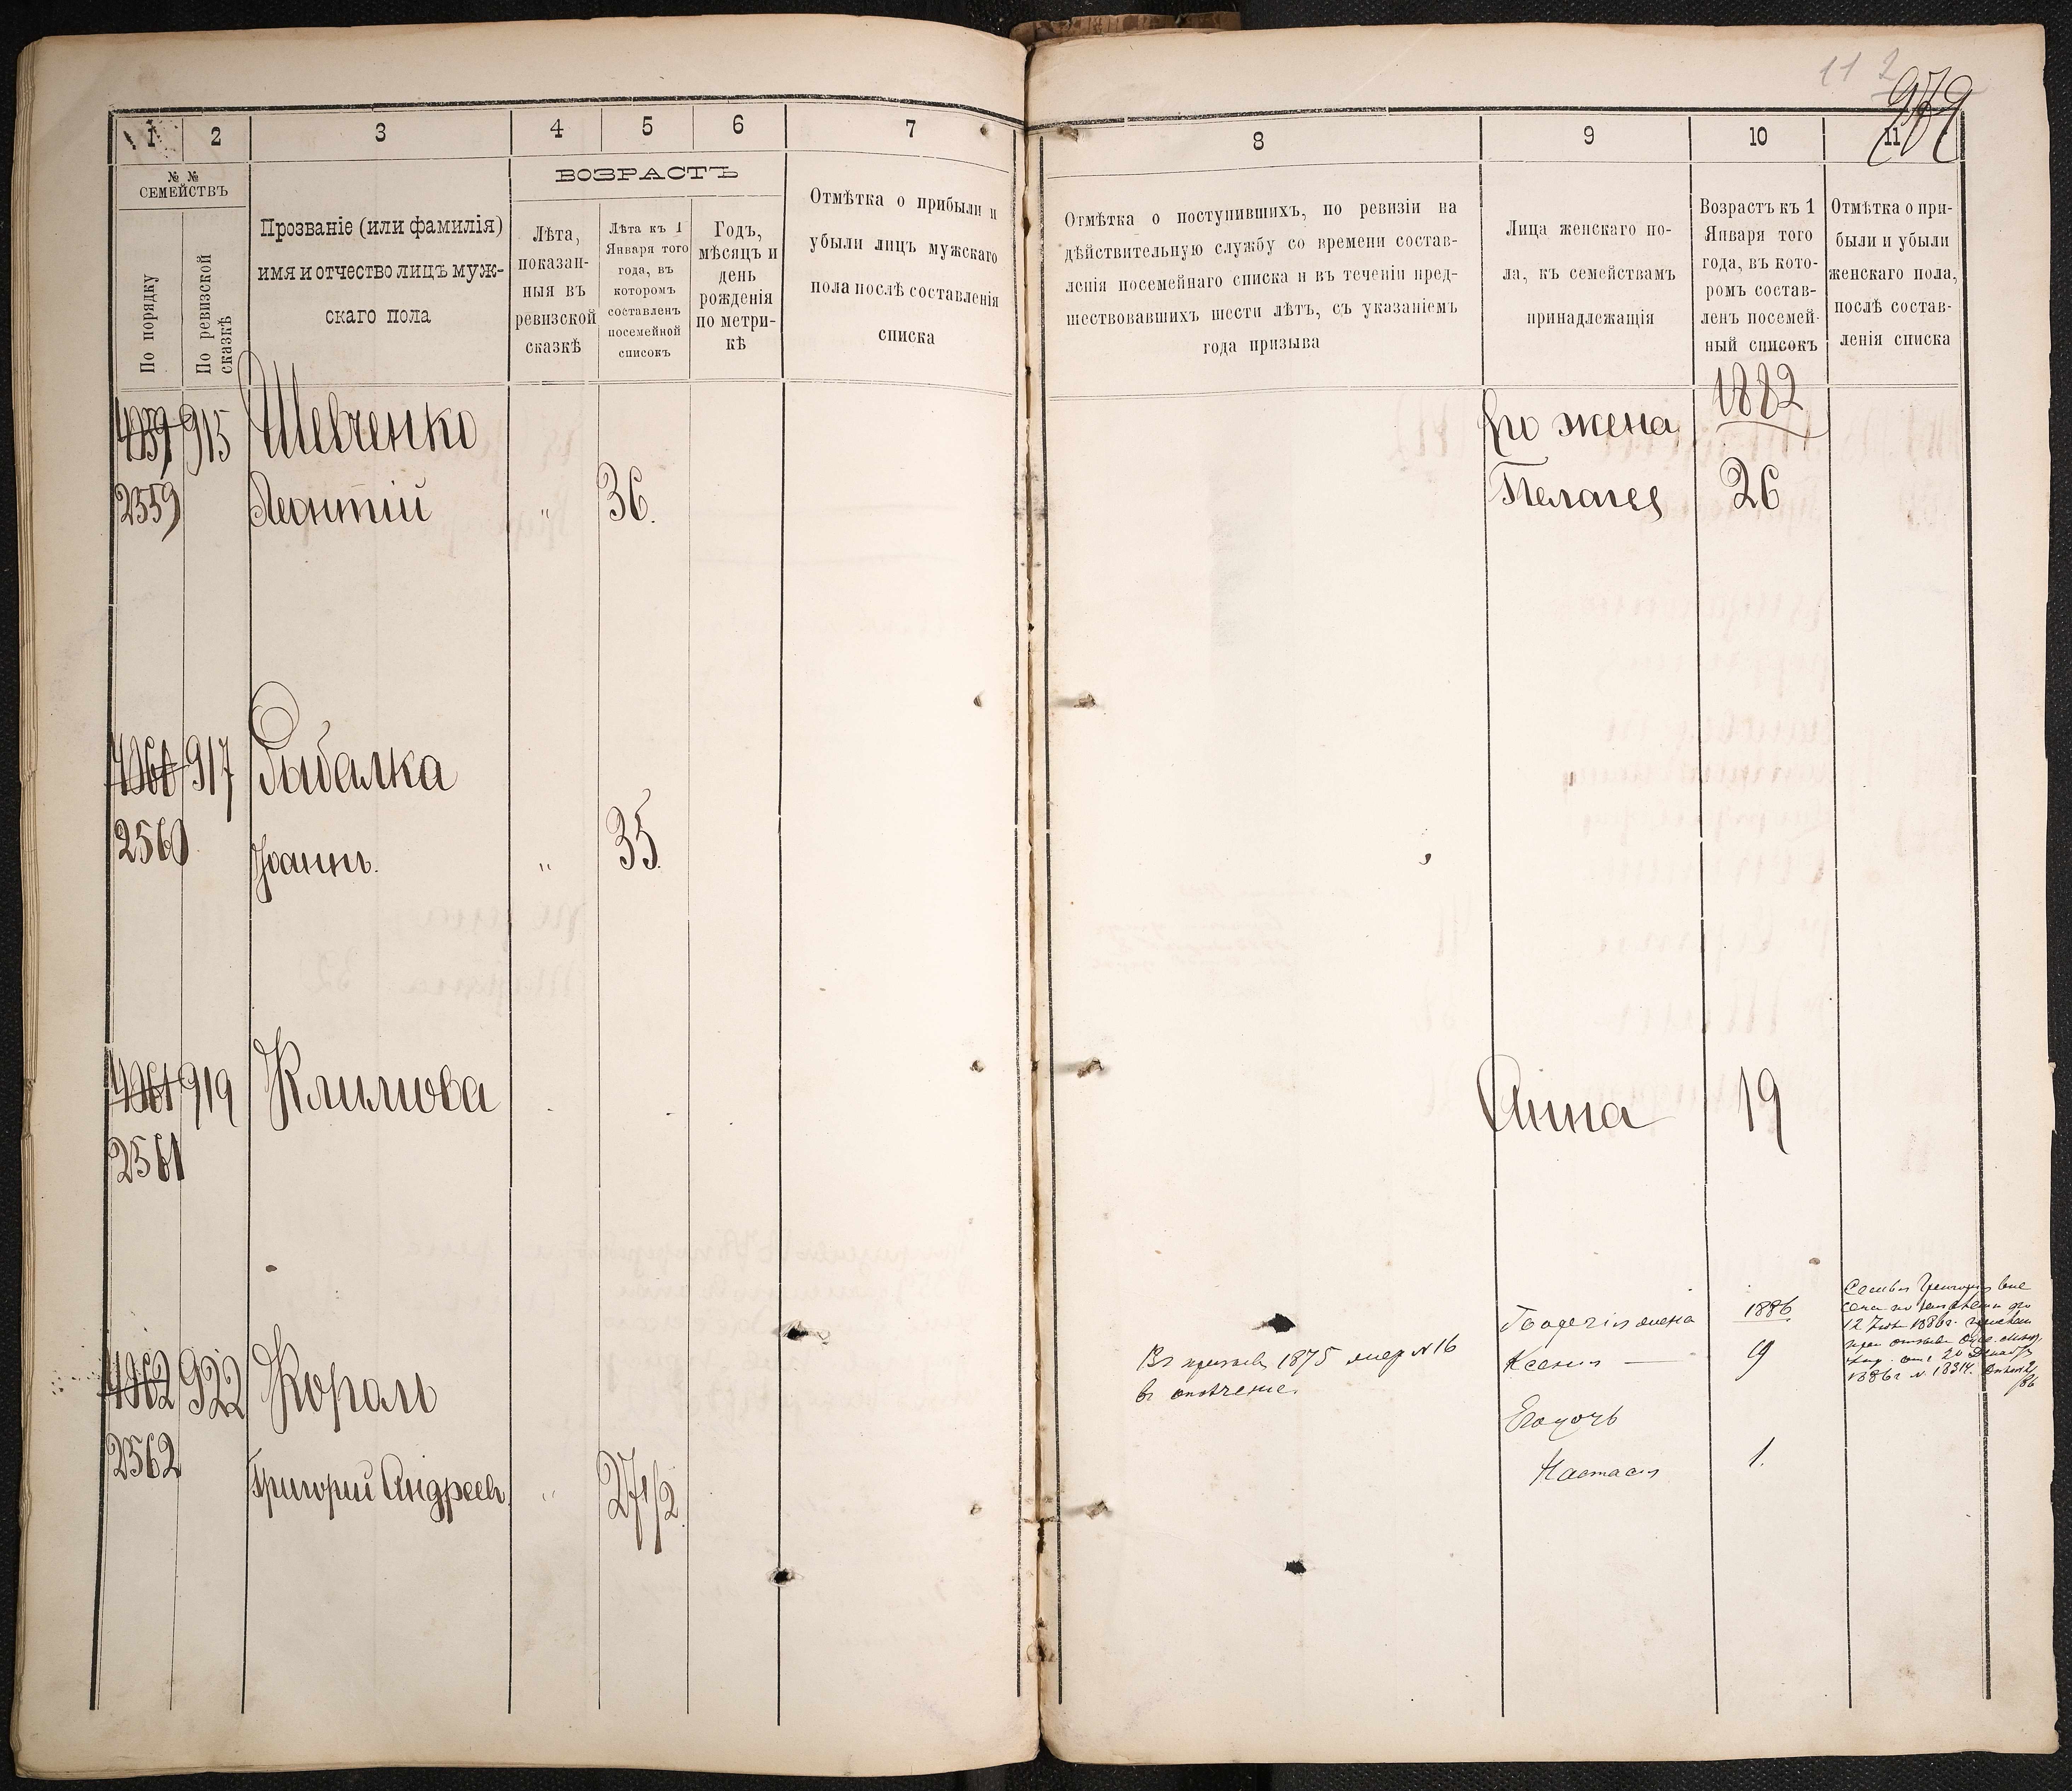 112
1
2
3
4
5
6
7
8
9
10
11
№ №
СЕМЕЙСТВЪ
По порядку
По ревизской
сказкѣ
Прозваніе (или фамилія)
имя и отчество лицъ муж-
скаго пола
ВОЗРАСТЪ
Лѣта,
показан-
ныя въ
ревизской
сказкѣ
Лѣта къ 1
Января того
года, въ
которомъ
составленъ
посемейной
списокъ
Годъ,
мѣсяцъ и
день
рожденія
по метри-
кѣ
Отмѣтка о прибыли и
убыли лицъ мужскаго
пола послѣ составленія
списка
Отмѣтка о поступившихъ, по ревизіи на
дѣйствительную службу со времени состав-
ленія посемейнаго списка и въ теченіи пред-
шествовавшихъ шести лѣтъ, съ указаніемъ
года призыва
Лица женскаго по-
ла, къ семействамъ
принадлежащія
Возрастъ къ 1
Января того
года, въ кото-
ромъ состав-
ленъ посемей-
ный списокъ
Отмѣтка о при-
были и убыли
женскаго пола,
послѣ состав-
ленія списка
1882
4059 915 Шевченко жена
2559 Леонтій " 36. Пелагея 26
4060 917 Рыбалка
2560 Іоаннъ. " 35.
4061 919 Климова Анна 19
2561
жена 1886
4062 922 Король Въ 1875 № 16 Ксенія —
въ ополченіе. Его дочь
2562 Настасія 1.
Григорій Андреевъ " 27 1/2.
12 1886г.
1886г №